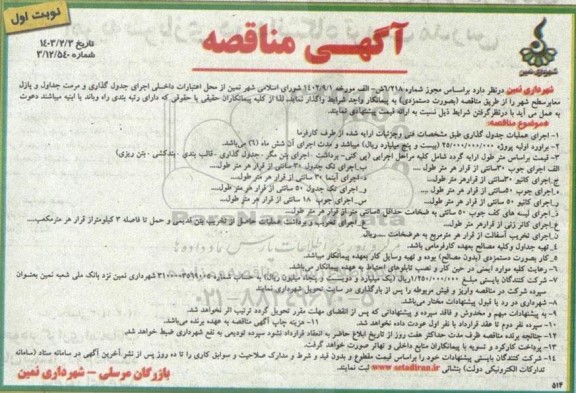 نوبت اول
آگهی مناقصه
تاریخ ۱۴۰۳/۲/۳
شماره ۳/۱۲/۵۴۰
شهرداری نمین
شهرداری نمین درنظر دارد براساس مجوز شماره ۶/۲۱۸/ش - الف مورخه ۱۴۰۲/۹/۱ شورای اسلامی شهر نمین از محل اعتبارات داخلی اجرای جدول گذاری و مرمت جداول و پازل
معابر سطح شهر را از طریق مناقصه (بصورت دستمزدی) به پیمانکار واجد شرایط واگذار نماید. لذا از کلیه پیمانکاران حقیقی یا حقوقی که دارای رتبه بندی راه وباند یا ابنیه میباشند دعوت
به عمل می آید با درنظرگرفتن شرایط ذیل نسبت به ارائه قیمت پیشنهادی نمایند.
موضوع مناقصه:
۱- اجرای عملیات جدول گذاری طبق مشخصات فنی وجزئیات ارایه شده از طرف کارفرما
۲- براورد اولیه پروژه ۲۵/۰۰۰/۰۰۰/۰۰۰ (بیست و پنج میلیارد ریال) میباشد و مدت اجرای آن شش ماه (۶) می‌باشد.
۳- قیمت براساس متر طول ارایه گردد شامل کلیه مراحل اجرایی (پی کنی- برداشت - اجرای بتن مگر - جدول گذاری - قالب بندی - بندکشی - بتن ریزی)
الف اجرای جوب ۳۰ سانتی از قرار هر متر طول....
ب. اجرای تک جدول ۳۰ سانتی از قرار هر متر طول....
ج. اجرای کانیو ۳۰ سانتی از قرار هر متر طول...
د- اجرای آبنما ۳۰ سانتی از قرار هر متر طول...
ه. اجرای جوب ۵۰ سانتی از قرار هر متر طول...
و. اجرای تک جدول ۵۰ سانتی از قرار هر متر طول...
ر. اجرای کانیو ۵۰ سانتی از قرار هر متر طول...
س. اجرای جوب ۱۸ سانتی از قرار هر متر طول...
د. اجرای لیسه های کف جوب ۵۰ سانتی به ضخامت حداقل ۵ سانتی متر از قرار هر متر طول...
ع. اجرای کاتر زنی از قرار هر متر طول...
غ. اجرای تخریب و برداشت عملیات حاصل از تخریب بتن قدیمی و حمل تا فاصله ۳ کیلومتر از قرار هر مترمکعب...
د. اجرای تخریب آسفالت از قرار هر مترمربع به هرضخامت ... ریال
۴- تهیه جداول وکلیه مصالح بعهده کارفرما می باشد.
۵- کار بصورت دستمزدی (بدون مصالح) بوده و تهیه وسایل کار بعهده پیمانکار میباشد.
۶- رعایت کلیه موارد ایمنی در حین کار و نصب تابلوهای احتیاط به عهده پیمانکار می‌باشد.
۷- شرکت کنندگان بایستی مبلغ ۱/۲۵۰/۰۰۰/۰۰۰ ریال (یک میلیارد و دویست و پنجاه میلیون ریال) به حساب شماره ۳۱۰۰۰۰۳۵۶۹۰۰۵ شهرداری نمین نزد بانک ملی شعبه نمین بعنوان
سپرده شرکت در مناقصه واریز و فیش مربوطه را پس از بارگذاری در سامانه ستاد تحویل نمایند.
۸- شهرداری در رد یا قبول پیشنهادات مختار می‌باشد.
۹- به پیشنهادات مبهم و مخدوش و فاقد سپرده و پیشنهاداتی که پس از انقضای مهلت مقرر تحویل گردد ترتیب اثر نخواهد شد.
۱۰- سپرده نفر دوم تا عقد قرارداد با نفر اول عودت داده نخواهد شد.
۱۱- هزینه چاپ آگهی مناقصه به عهده برنده می‌باشد.
۱۲- چنانچه برنده مناقصه ظرف مدت حداکثر هفت روز از تاریخ ابلاغ حاضر به انعقاد قرارداد نشود سپرده تودیعی به نفع شهرداری ضبط خواهد شد.
۱۳- پرداخت کارکرد و تسویه با پیمانکاران منابع داخلی و تهاتر صورت خواهد گرفت.
۱۴- شرکت کنندگان بایستی پیشنهادات خود را براساس قیمت مقطوع و بدون قید و شرط و مدارک صلاحیت و سوابق کاری را تا ده روز پس از نشر آخرین آگهی در سامانه ستاد (سامانه
تدارکات الکترونیکی دولت) بنشانی www.setadiran.ir ثبت نمایند.
بازرگان مرسلی - شهرداری نمین
۵۱۴